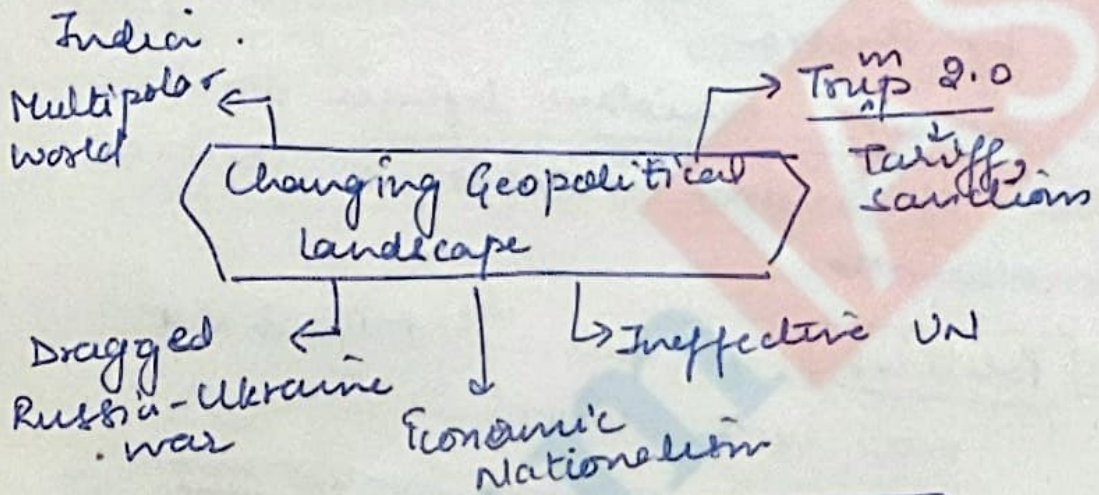 India.
Multipolar
world
Trump 2.0
Tariff,
sanctions
Changing Geopolitical
landscape
Dragged
Russia-Ukraine
war
Economic
Nationalism
Ineffective UN